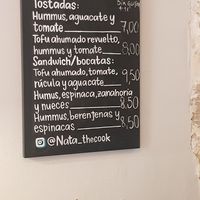 Tostadas:
Hummus, aguacate y
tomate 7,00
Tofu ahumado revuelto,
hummus y tomate 8,00
Sandwich/bocatas:
Tofu ahumado, tomate,
rúcula y aguacate 9,50
Humus, espinaca, zanahoria
y nueces 8,50
Hummus, berenjenas y
espinacas 8,50
@Nata_thecook